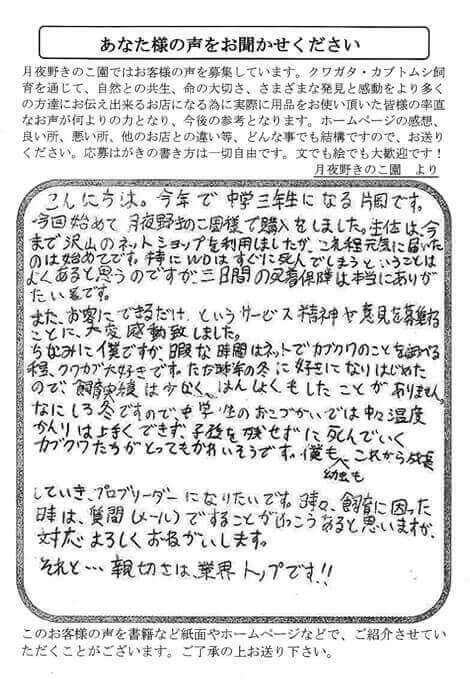 あなた様の声をお聞かせください
月夜野きのこ園ではお客様の声を募集しています。クワガタ・カブトムシ飼
育を通じて、自然との共生、命の大切さ、さまざまな発見と感動をより多く
の方達にお伝え出来るお店になる為に実際に用品をお使い頂いた皆様の率直
なお声が何よりの力となり、今後の参考となります。ホームページの感想、
良い所、悪い所、他のお店との違い等、どんな事でも結構ですので、お送り
ください。応募はがきの書き方は一切自由です。文でも絵でも大歓迎です！
月夜野きのこ園 より
こんにちは。今年で中学三年生になる片岡です。
今回始めて月夜野きのこ園様で購入をしました。生体は、今
まで沢山のネットショップを利用しましたが、これ程元気に届いた
のは始めてです。特にWDはすぐに死んでしまうということは
よくあると思うのですが、三日間の死着保障は本当にありが
たいです。
また、お客にできるだけ、というサービス精神や意見を募集する
ことに、大変感動致しました。
ちなみに僕ですが、暇な時間はネットでカブクワのことを調べる
程、クワガタが大好きです。ただ昨年の冬に好きになりはじめた
ので、飼育実績は少なく、はんしょくもしたことがありません。
なにしろ冬ですので、中学生のおこづかいでは中々温度
かんりは上手くできず、子孫を残せずに死んでいく
カブクワたちがとってもかわいそうです。僕も、これから成長
幼虫も
していき、プロブリーダーになりたいです。時々、飼育に困った
時は、質問(メール)ですることがけっこうあると思いますが、
対応よろしくおねがいします。
それと…親切さは、業界トップです!!
このお客様の声を書籍など紙面やホームページなどで、ご紹介させてい
ただくことがございます。ご了承の上お送り下さい。